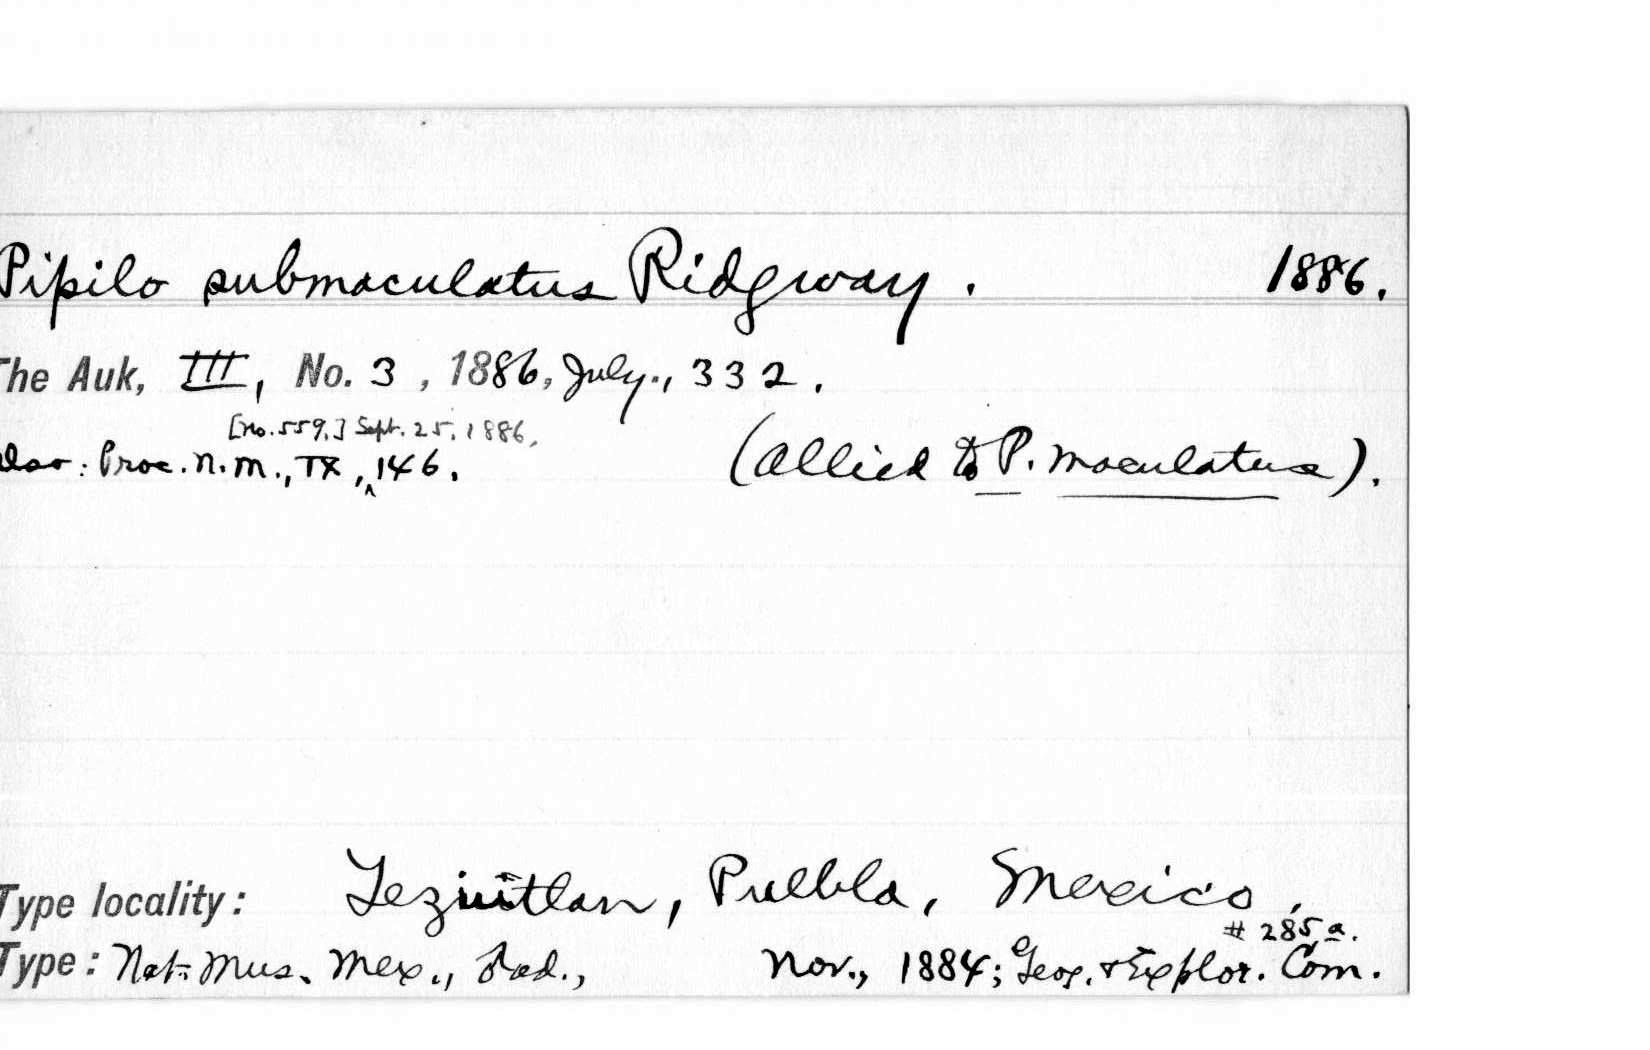 Pipilo submaculatus Ridgway. 1886.
The Auk, III, No. 3, 1886, July., 332.
[no. 559,] Sept. 25, 1886,
also: Proc. N. M., IX, ‸146. (Allied to P. maculatus).
Type locality: Teziutlan, Puebla, Mexico,
# 285a.
Type: Nat. Mus. Mex., ad., Nov., 1884; Geog. & Explor. Com.